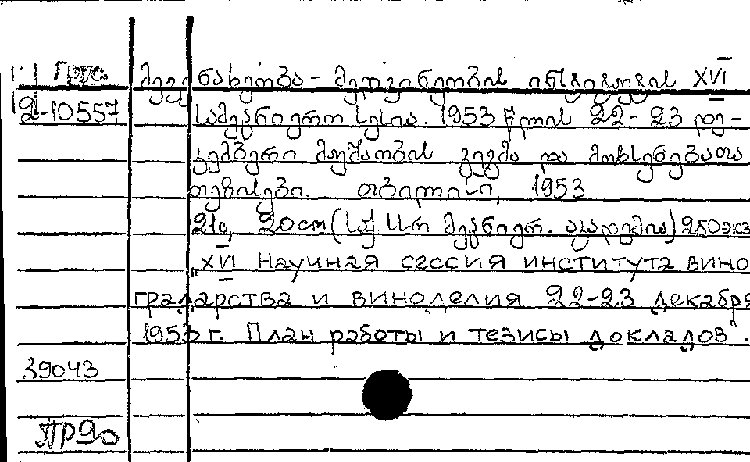 მევენახეობა-მეღვინეობის ინსტიტუტის XVI
2-10557 სამეცნიერო სესია. 1953 წლის 22-23 დე-
კემბერი მუშაობის გეგმა და მოხსენებათა
თეზისები. თბილისი, 1953
21с, 20см (საქ სსრ მეცნიერ. აკადემია) 250экз
„XVI научная сессия института вино
градарства и виноделия 22-23 декабря
1953 г. План работы и тезисы докладов".
39043